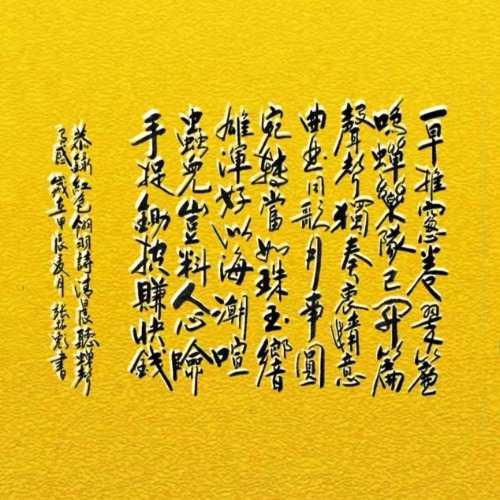 一早推窻卷翠簾
鳴蟬樂隊已開篇
聲聲獨奏衷情意
曲曲同歌月事圓
宛轉當如珠玉響
雄渾好似海潮喧
蟲兒豈料人心險
手捉賺快錢
恭錄紅色翎羽詩清晨聽蟬聲
有感歲在甲辰夏月張書